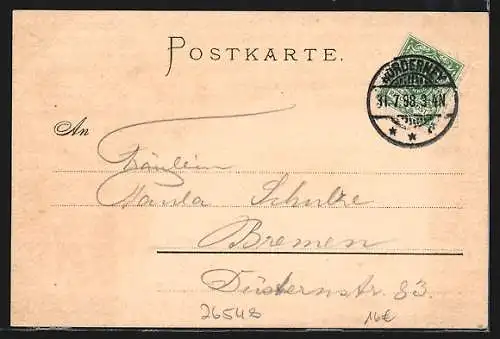 POSTKARTE.
NORDERNEY
31.7.98.3-4N
An
Fräulein
Paula Schultze
Bremen
Düsternstr. 83.
26548
16€